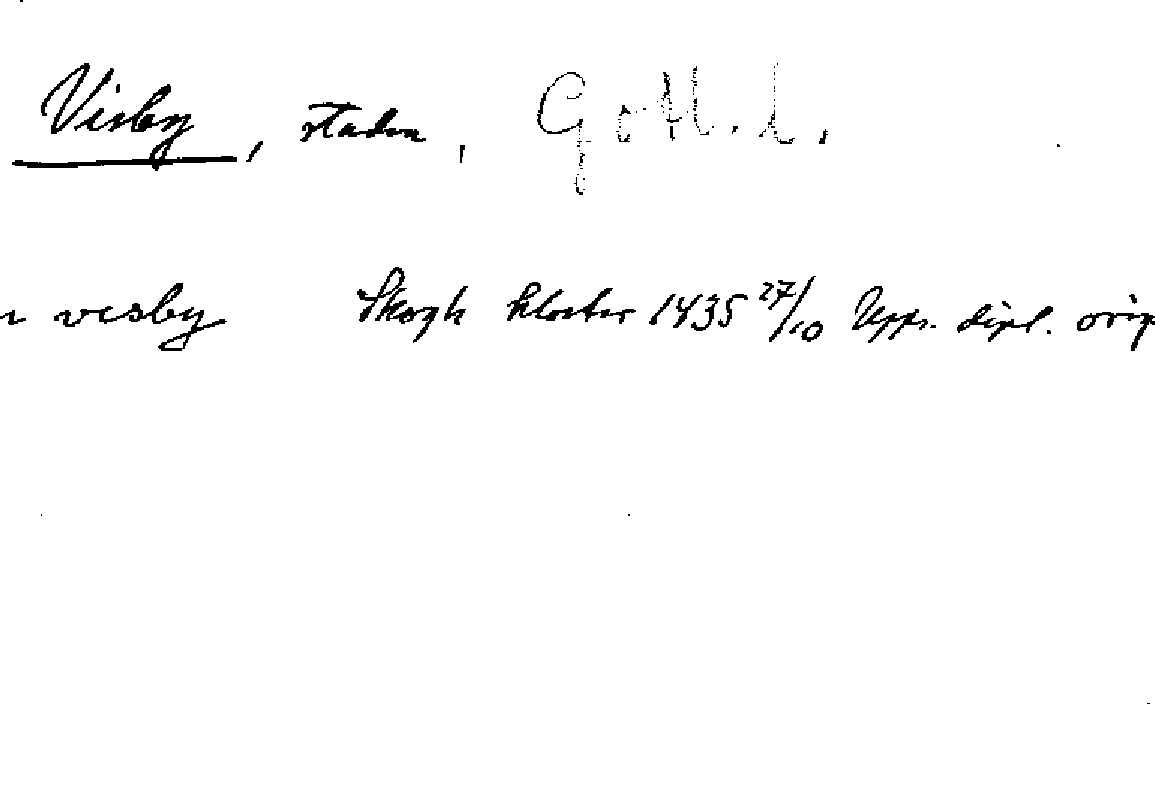 Visby, staden, Gotl. l.
visby Skogh kloster 1435 27/10 Upps. dipl. orig